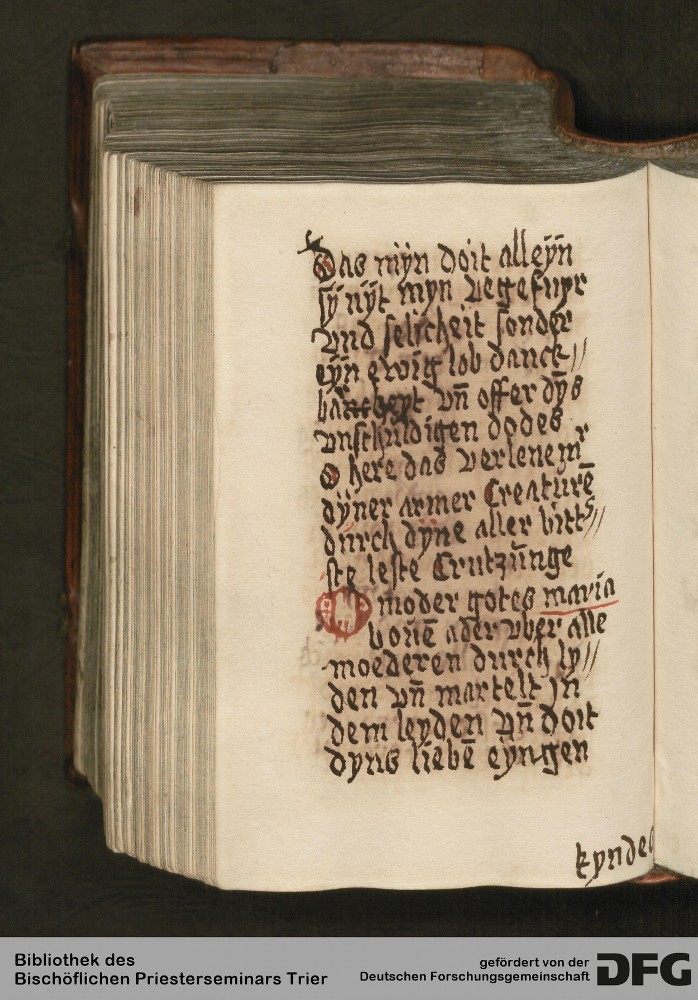 Das mÿn doit alleÿn
sÿ nÿt myn vegefuyr
vnd selicheit sonder
eÿn ewig lob danck//
vn̄ offer dÿs
vnschuldigen dodes
O here das verlene mir
dÿner armer Creaturē
durch dÿne aller bitt//
ste leste Crutzūnge
O moder gotes maria
bouē ader vber alle
moederen durch ly//
den vn̄ martelt jn
dem leyden vn̄ doit
dyns liebē eyngen
kyndes
Bibliothek des
Bischöflichen Priesterseminars Trier
gefördert von der
Deutschen Forschungsgemeinschaft
DFG